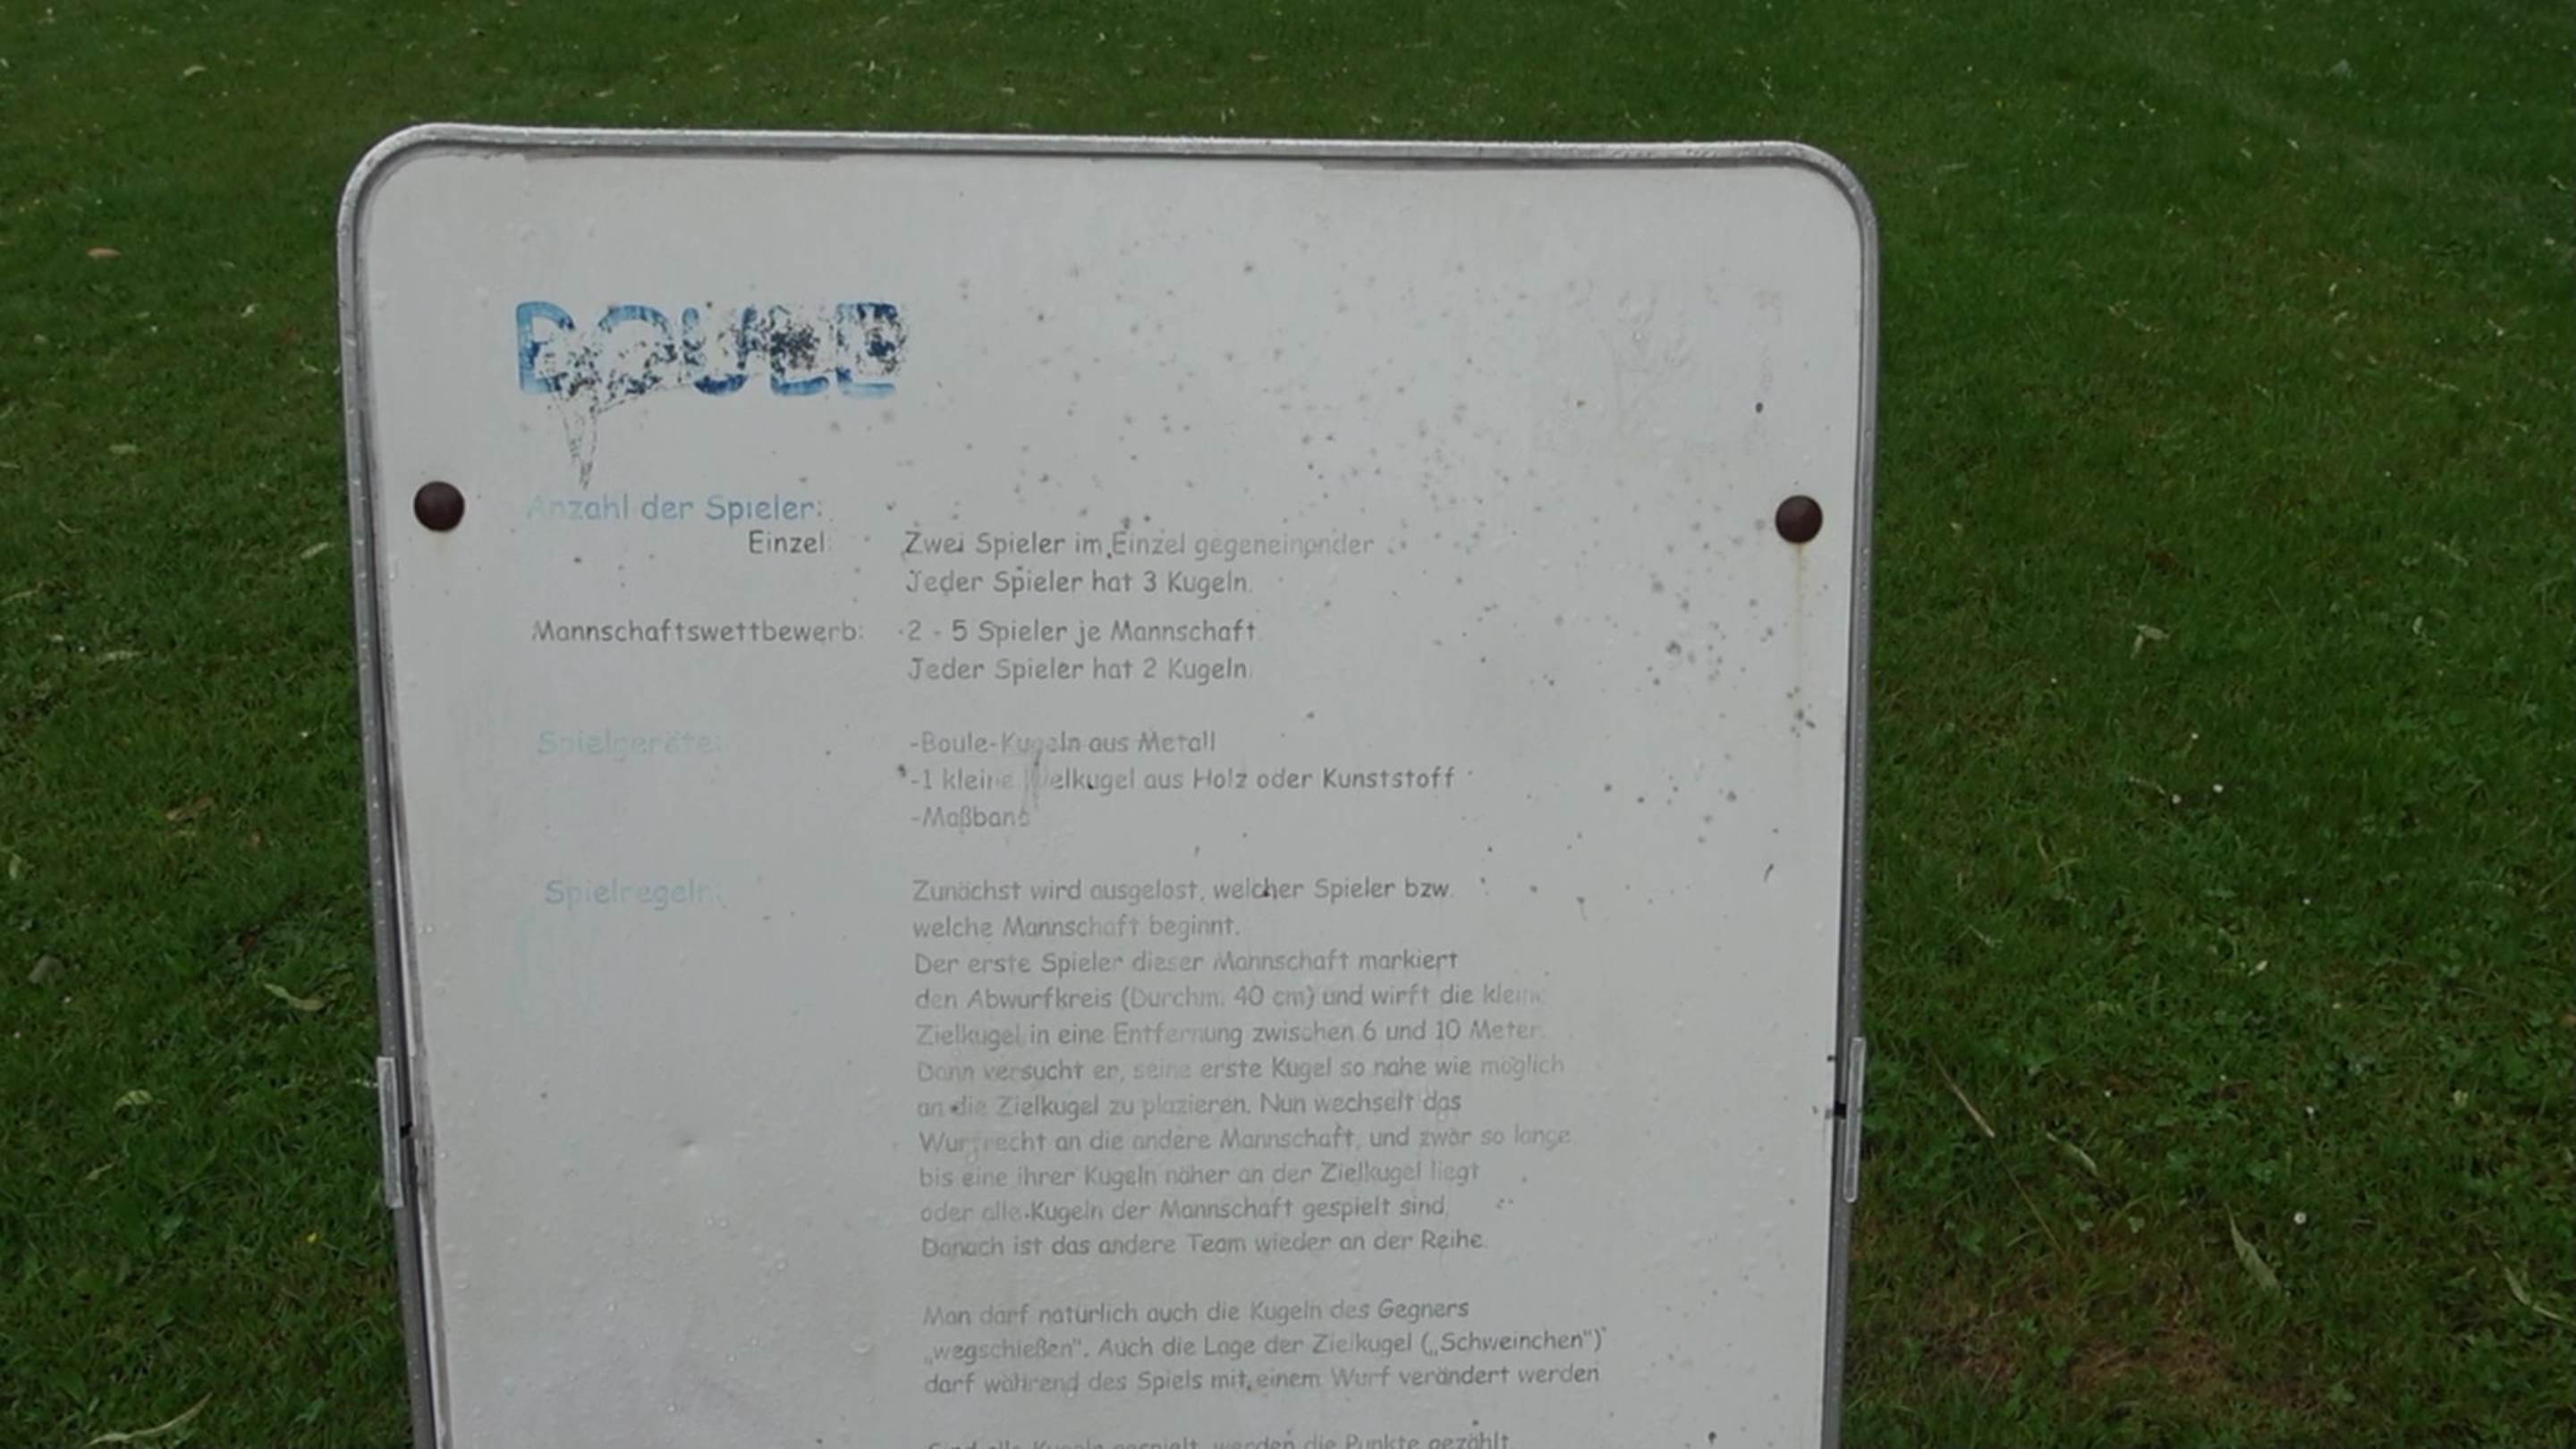 BOULE
Anzahl der Spieler:
Einzel: Zwei Spieler im Einzel gegeneinander
Jeder Spieler hat 3 Kugeln.
Mannschaftswettbewerb: 2 - 5 Spieler je Mannschaft
Jeder Spieler hat 2 Kugeln
Spielgeräte: -Boule-Kugeln aus Metall
-1 kleine Zielkugel aus Holz oder Kunststoff
-Maßband
Spielregeln: Zunächst wird ausgelost, welcher Spieler bzw.
welche Mannschaft beginnt.
Der erste Spieler dieser Mannschaft markiert
den Abwurfkreis (Durchm. 40 cm) und wirft die kleine
Zielkugel in eine Entfernung zwischen 6 und 10 Meter.
Dann versucht er, seine erste Kugel so nahe wie möglich
an die Zielkugel zu plazieren. Nun wechselt das
Wurfrecht an die andere Mannschaft, und zwar so lange
bis eine ihrer Kugeln näher an der Zielkugel liegt
oder alle Kugeln der Mannschaft gespielt sind.
Danach ist das andere Team wieder an der Reihe.
Man darf natürlich auch die Kugeln des Gegners
„wegschießen". Auch die Lage der Zielkugel („Schweinchen")
darf während des Spiels mit einem Wurf verändert werden
Sind alle Kugeln gespielt, werden die Punkte gezählt.